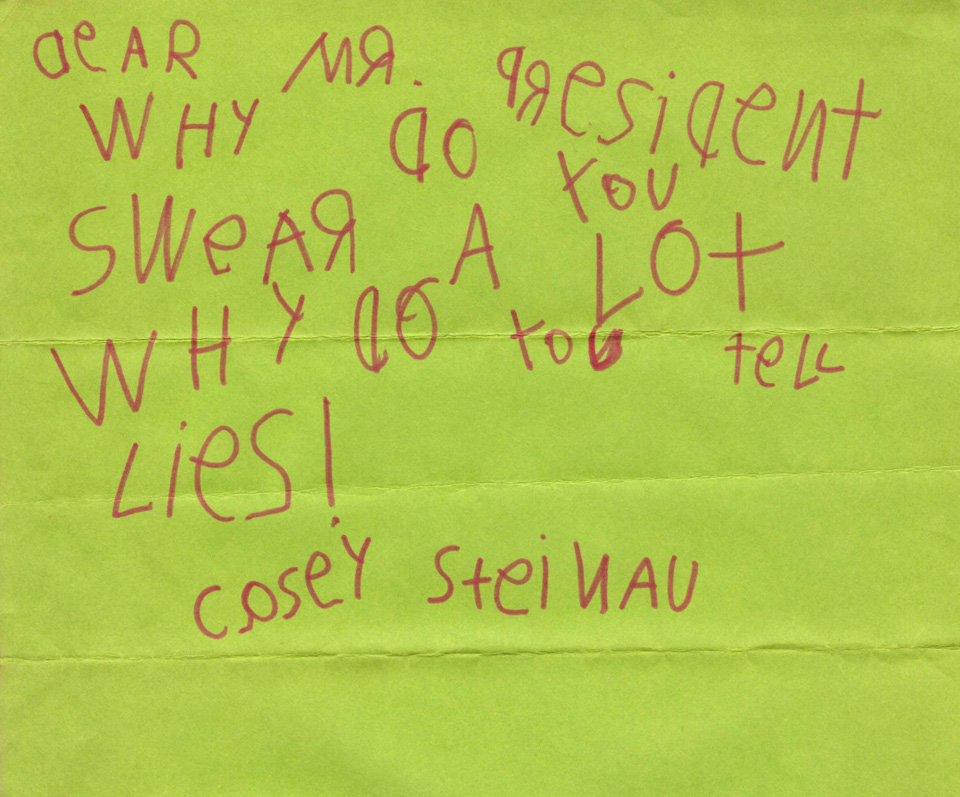 DeAR MR. PResident
WHY DO YOU
SWeAR A LOT
WHY DO YOU teLL
LieS!
Casey SteiNAU